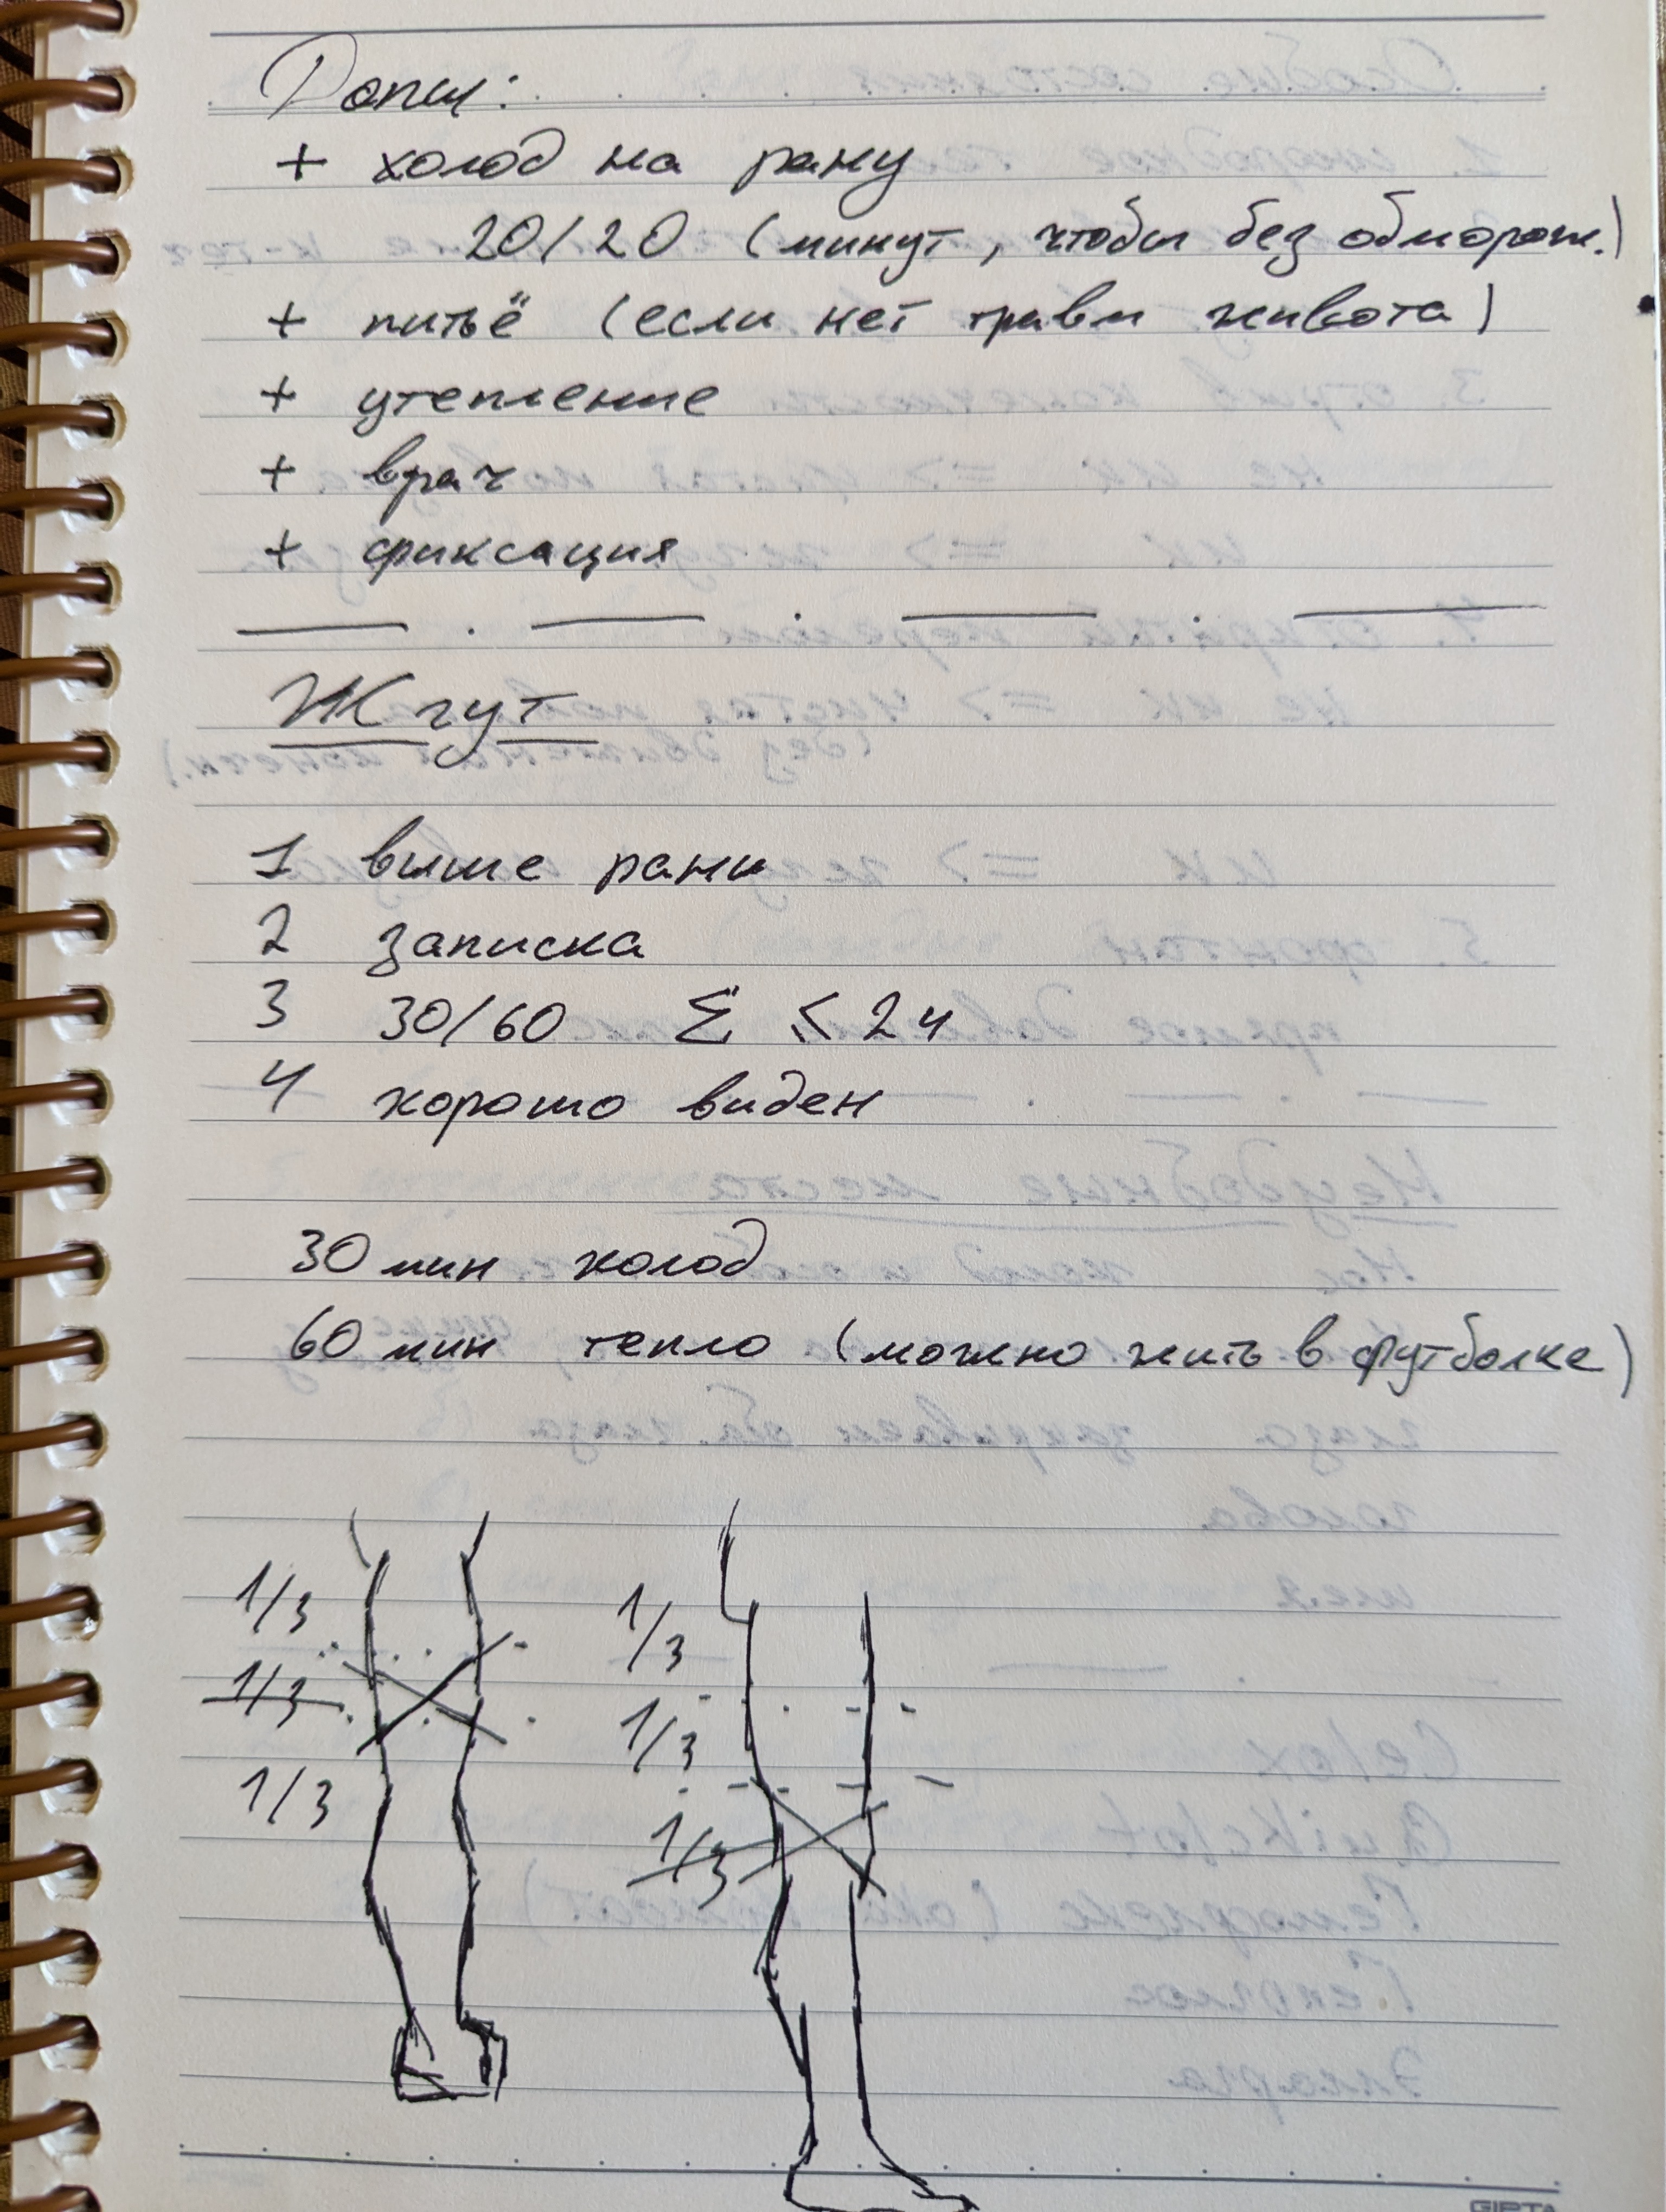 Допы:
+ холод на рану
20/20 (минут, чтобы без обморож.)
+ питьё (если нет травм живота)
+ утепление
+ врач
+ фиксация
Жгут
1 выше раны
2 записка
3 30/60 Σ ≤ 2ч
4 хорошо виден
30 мин холод
60 мин тепло (можно жить в футболке)
1/3
1/3
1/3
1/3
1/3
1/3
GIPTA